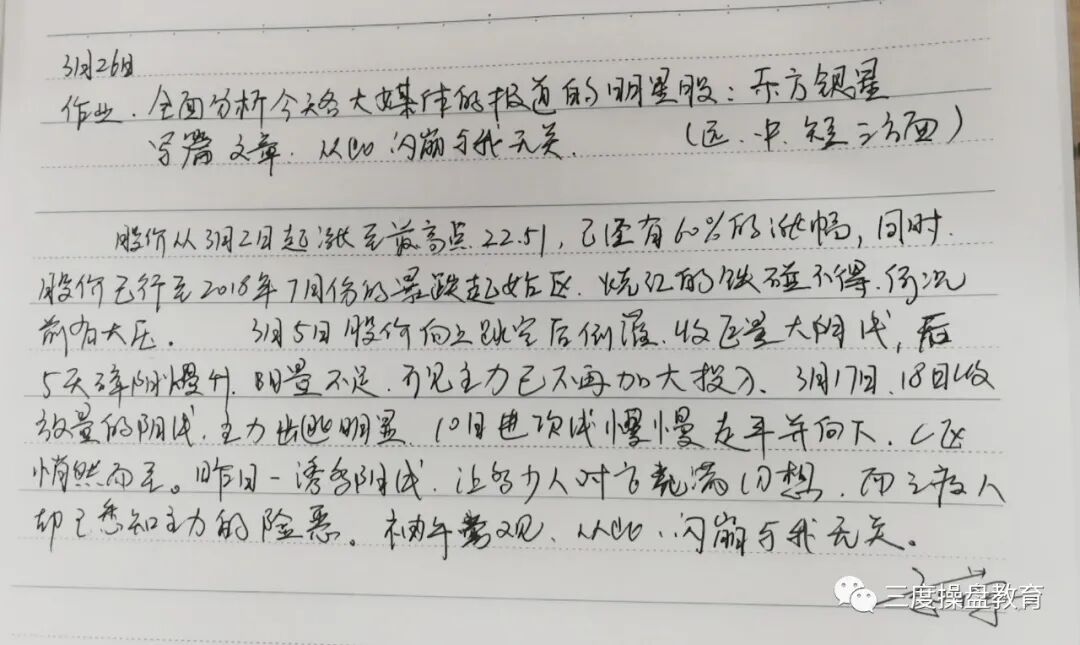 3月26日
作业.全面分析今天各大媒体的报道的明星股:东方银星
写篇文章.从此闪崩与我无关.(远.中.短三方面)
股价从3月2日起涨至最高点22.51,已经有60%的涨幅,同时.
股价已行至2018年7月份的暴跌起始区.烧红的铁碰不得.何况
前有大压。3月5日股价向上跳空后倒灌.收巨量大阴线,后
5天碎阳慢升.明量不足.可见主力已不再加大投入、3月17日.18日收
放量的阴线.主力出逃明显.10日进攻线慢慢走平并向下.C区
悄然而至。昨日一诱多阴线.让多少人对它充满幻想.而三度人
却已悉知主力的险恶。袖手旁观、从此..闪崩与我无关。
三度操盘教育